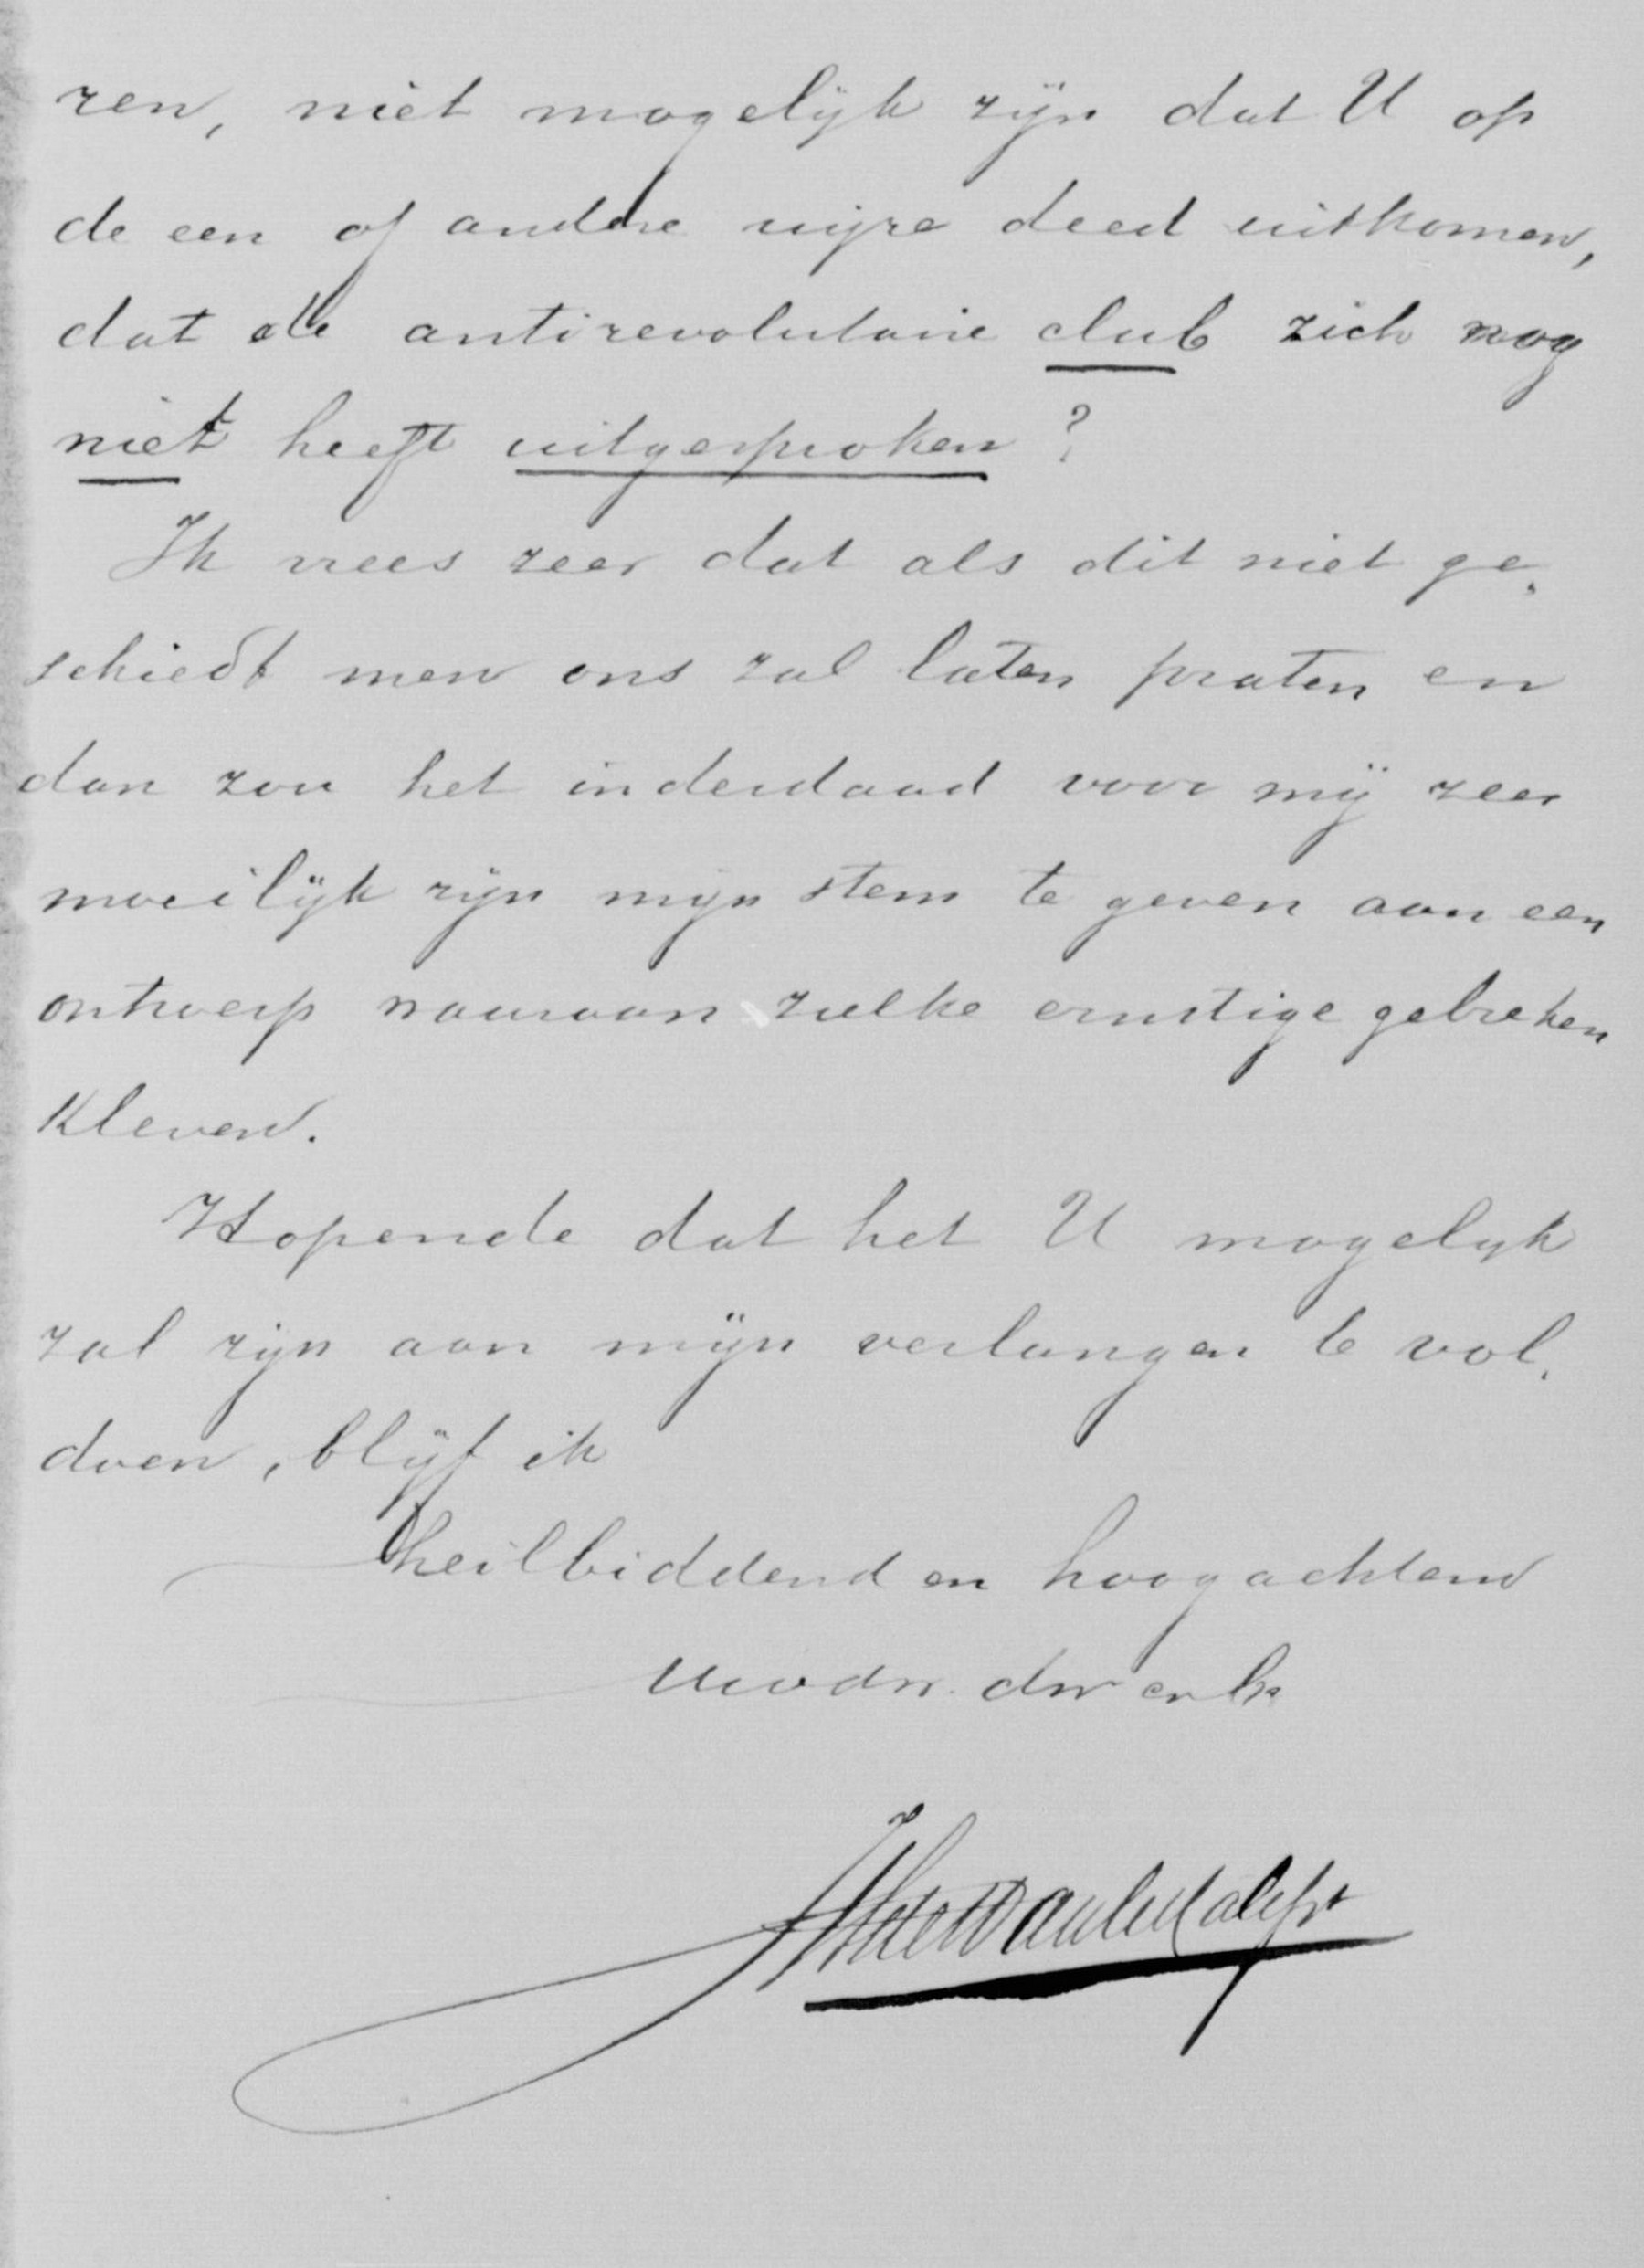 ren, niet mogelijk zijn dat U op
de een of andere wijze deed uitkomen,
dat de antirevolutaire club zich nog
niet heeft uitgesproken?
Ik vrees zeer dat als dit niet ge-
schiedt men ons zal laten praten en
dan zou het inderdaad voor mij zeer
moeilijk zijn mijn stem te geven aan een
ontwerp waaraan zulke ernstige gebreken
kleven.
Hopende dat het U mogelijk
zal zijn aan mijn verlangen te vol-
doen, blijf ik
heilbiddend en hoogachtend
dw en br